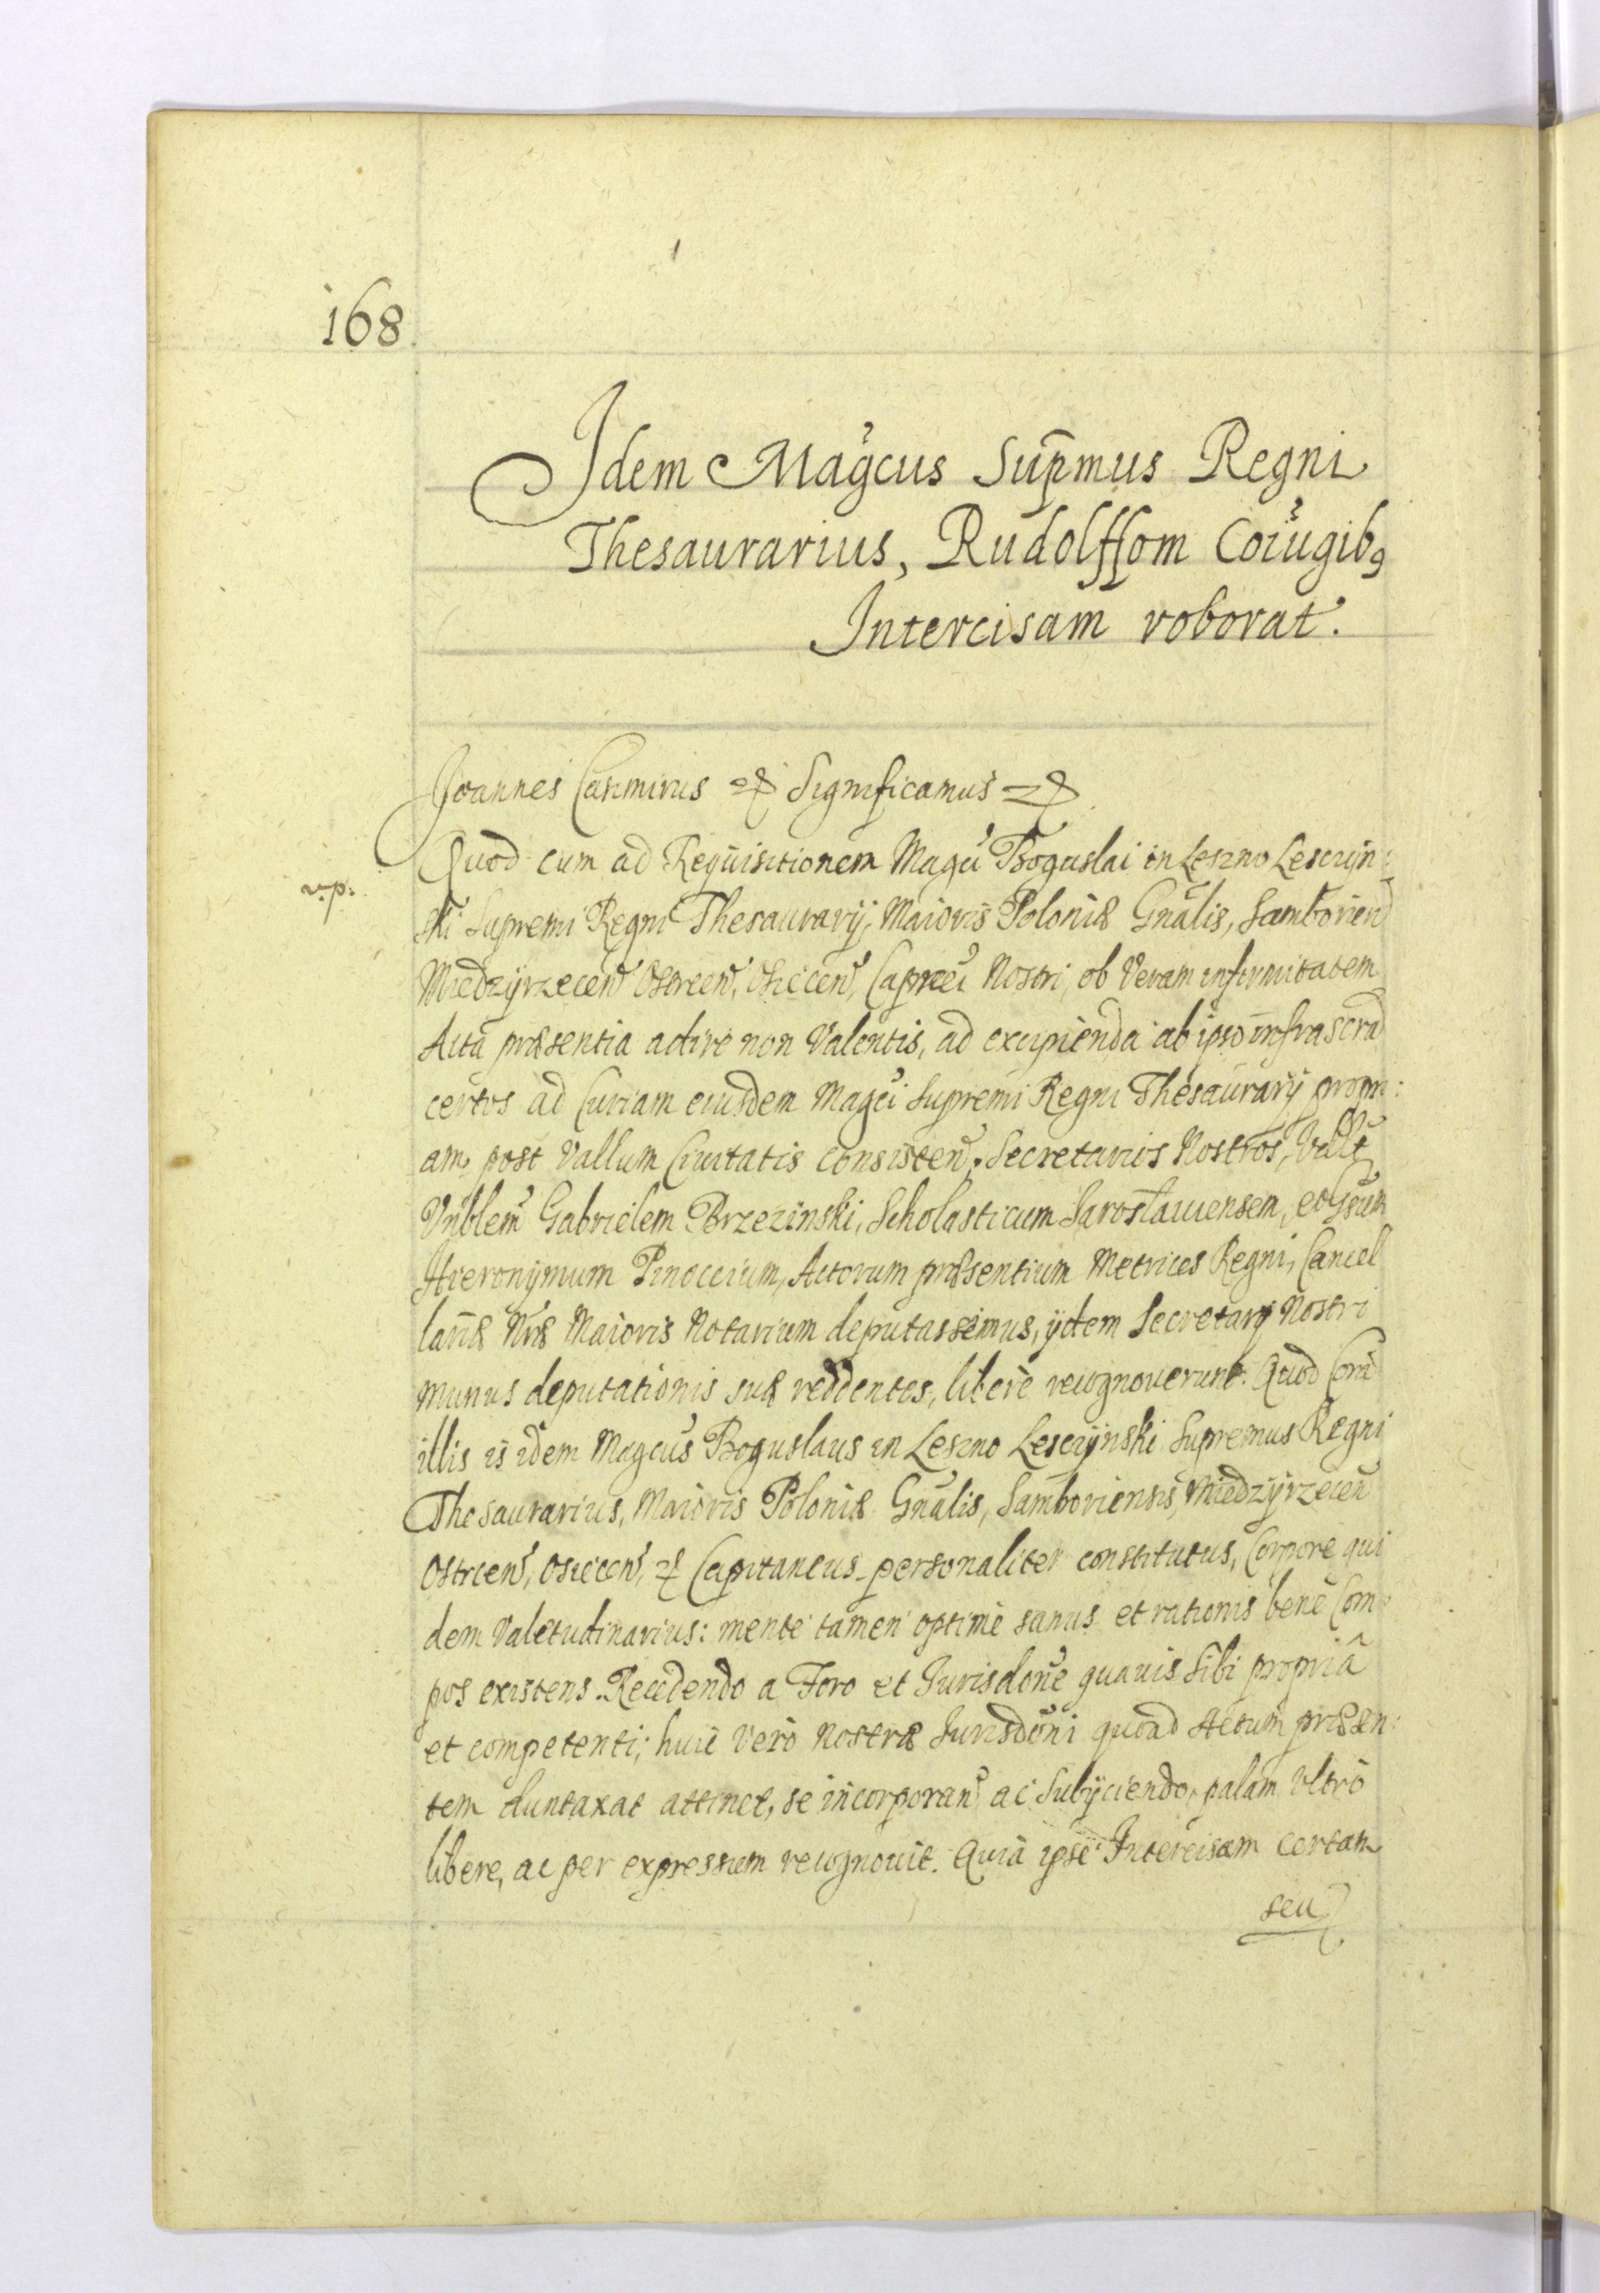 168
Idem Magcus Supmus Regni
Thesaurarius, Rudolffom Coiugibs
Intercisam roborat.
Joannes Casimirus & Significamus &
Quod cum ad Requisitionem Magci Boguslai in Leszno Lesczyn:
ski Supremi Regni Thesaurarij, Maioris Poloniæ Gnalis, Samborien
Miedzyrzecen Ostrcen, Osiecen, Capnei Nostri, ob Veram infirmitatem
Acta præsentia adire non Valentis, ad excipienda ab ipso infrascra
certos ad Curiam eiusdem Magci Supremi Regni Thesaurarij propri:
am post Vallum Ciuitatis consisten, Secretarios Nostros,
Vnblem Gabrielem Brzezinski, Scholasticum Jaroslauiensem, et Gsum
Hieronymum Pinoccium, Actorum præsentium Metrices Regni, Cancel
lariæ Nræ Maioris Notarium deputassemus, ijdem Secretarij Nostri
munus deputationis suæ reddentes, liberè recognouerunt. Quod Cora
illis is idem Magcus Boguslaus in Leszno Lesczynski Supremus Regni
Thesaurarius, Maioris Poloniæ Gnalis, Samboriensis, Miedzyrzecen
Ostrcen, Osiecen, & Capitaneus personaliter constitutus, Corpore qui
dem Valetudinarius: mente tamen optimè sanus et rationis bene Com
pos existens. Recedendo a Foro et Jurisdone quauis Sibi propriâ
et competenti; huic Verò Nostræ Jurisdoni quoad Actum præsen:
tem duntaxat attinet, se incorporan ac Subijciendo, palam Vltrò
libere, ac per expressum recognouit. Quia ipse Intercisam certam
seu